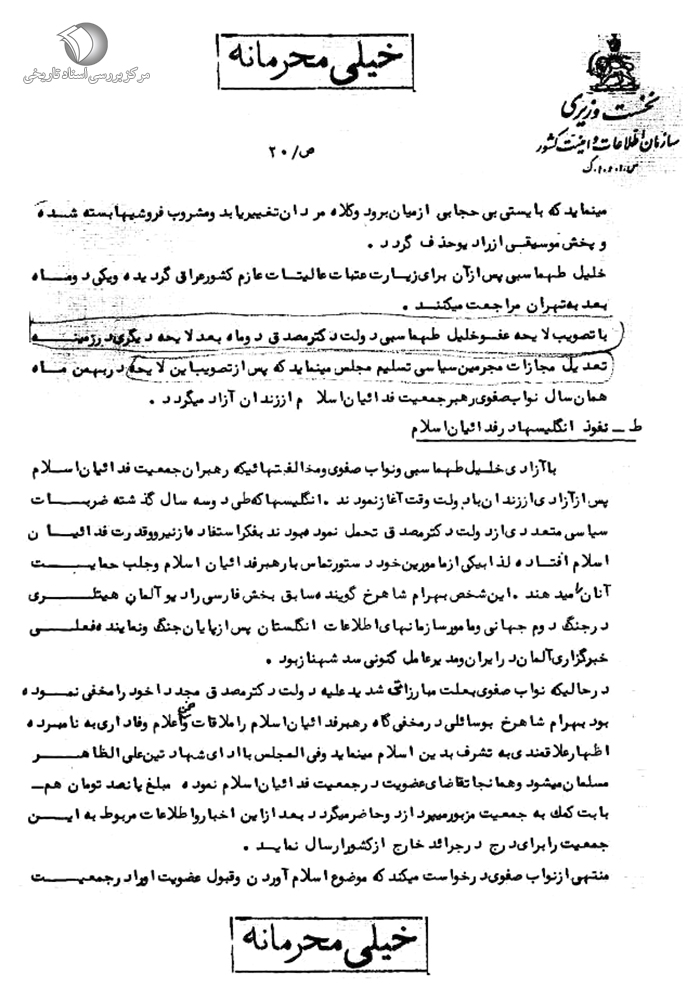 مرکز بررسی اسناد تاریخی
خیلی محرمانه
نخست وزیری
سازمان اطلاعات و امنیت کشور
ص/۲۰
مینماید که بایستی بی حجابی ازمیان برود وکلاه مردان تغییریابد ومشروب فروشیها بسته شده
و پخش موسیقی ازرادیوحذف گردد .
خلیل طهماسبی پس ازآن برای زیارت عتبات عالیات عازم کشورعراق گردیده ویکی دوماه
بعد به تهران مراجعت میکنند .
با تصویب لایحه عفو خلیل طهماسبی دولت دکترمصدق دوماه بعد لایحه دیگری درزمینه
تعدیل مجازات مجرمین سیاسی تسلیم مجلس مینماید که پس ازتصویب این لایحه دربهمن ماه
همان سال نواب صفوی رهبر جمعیت فدائیان اسلام اززندان آزاد میگردد .
ط ـ نفوذ انگلیسهادرفدائیان اسلام
باآزادی خلیل طهماسبی ونواب صفوی ومخالفتهائیکه رهبران جمعیت فدائیان اسلام
پس ازآزادی اززندان بادولت وقت آغازنمودند . انگلیسهاکه طی دوسه سال گذشته ضربات
سیاسی متعددی ازدولت دکترمصدق تحمل نموده بودند بفکراستفاده ازنیرووقدرت فدائیان
اسلام افتاده لذا بیکی ازمامورین خود دستورتماس بارهبرفدائیان اسلام وجلب حمایت
آنان را میدهند . این شخص بهرام شاهرخ گوینده سابق بخش فارسی رادیوآلمان هیتلری
درجنگ دوم جهانی ومامورسازمانهای اطلاعات انگلستان پس ازپایان جنگ ونماینده فعلی
خبرگزاری آلمان درایران ومدیرعامل کنونی سد شهنازبود .
درحالیکه نواب صفوی بعلت مبارزاتی شدیدعلیه دولت دکترمصدق مجددا خودرا مخفی نموده
بود بهرام شاهرخ بوسائلی درمخفی گاه رهبرفدائیان اسلام راملاقات و ضمن اعلام وفاداری به نامبرده
اظهارعلاقمندی به تشرف بدین اسلام مینماید وفی المجلس باادای شهادتین علی الظاهر
مسلمان میشود وهمانجا تقاضای عضویت درجمعیت فدائیان اسلام نموده مبلغ پانصد تومان هم
بابت کمك به جمعیت مزبورمیپردازد وحاضرمیگردد بعد ازاین اخبارواطلاعات مربوط به این
جمعیت رابرای درج درجرائد خارج ازکشورارسال نماید .
منتهی ازنواب صفوی درخواست میکند که موضوع اسلام آوردن وقبول عضویت اورادرجمعیت
خیلی محرمانه